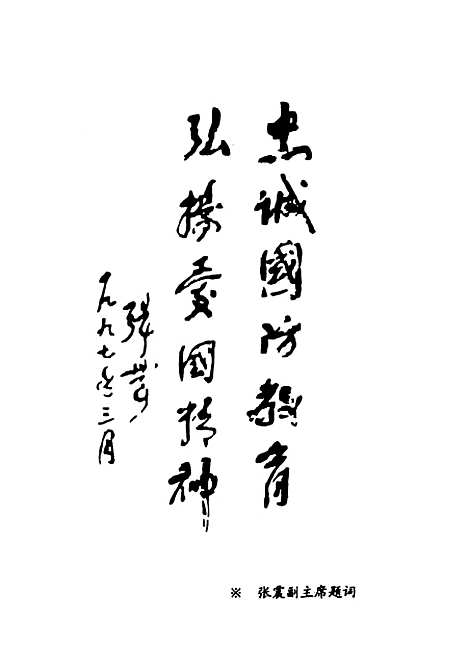 忠诚國防教育
弘扬爱国精神
张震
一九九七年三月
※ 张震副主席题词